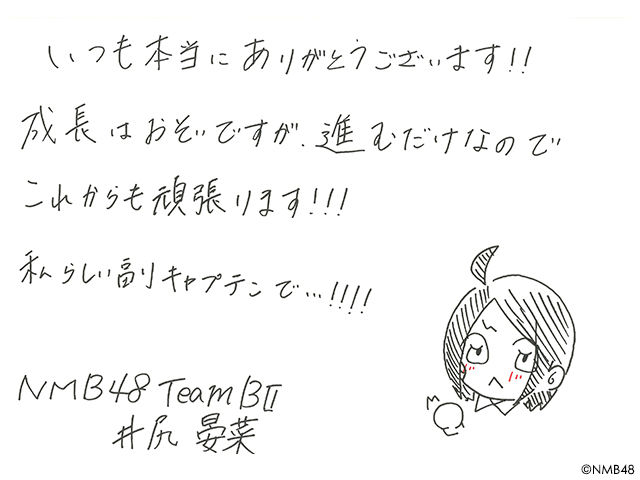 いつも本当にありがとうございます!!
成長はおそいですが、進むだけなので
これからも頑張ります!!!
私らしい副キャプテンで…!!!!
NMB48 Team BⅡ
井尻 晏菜
©NMB48